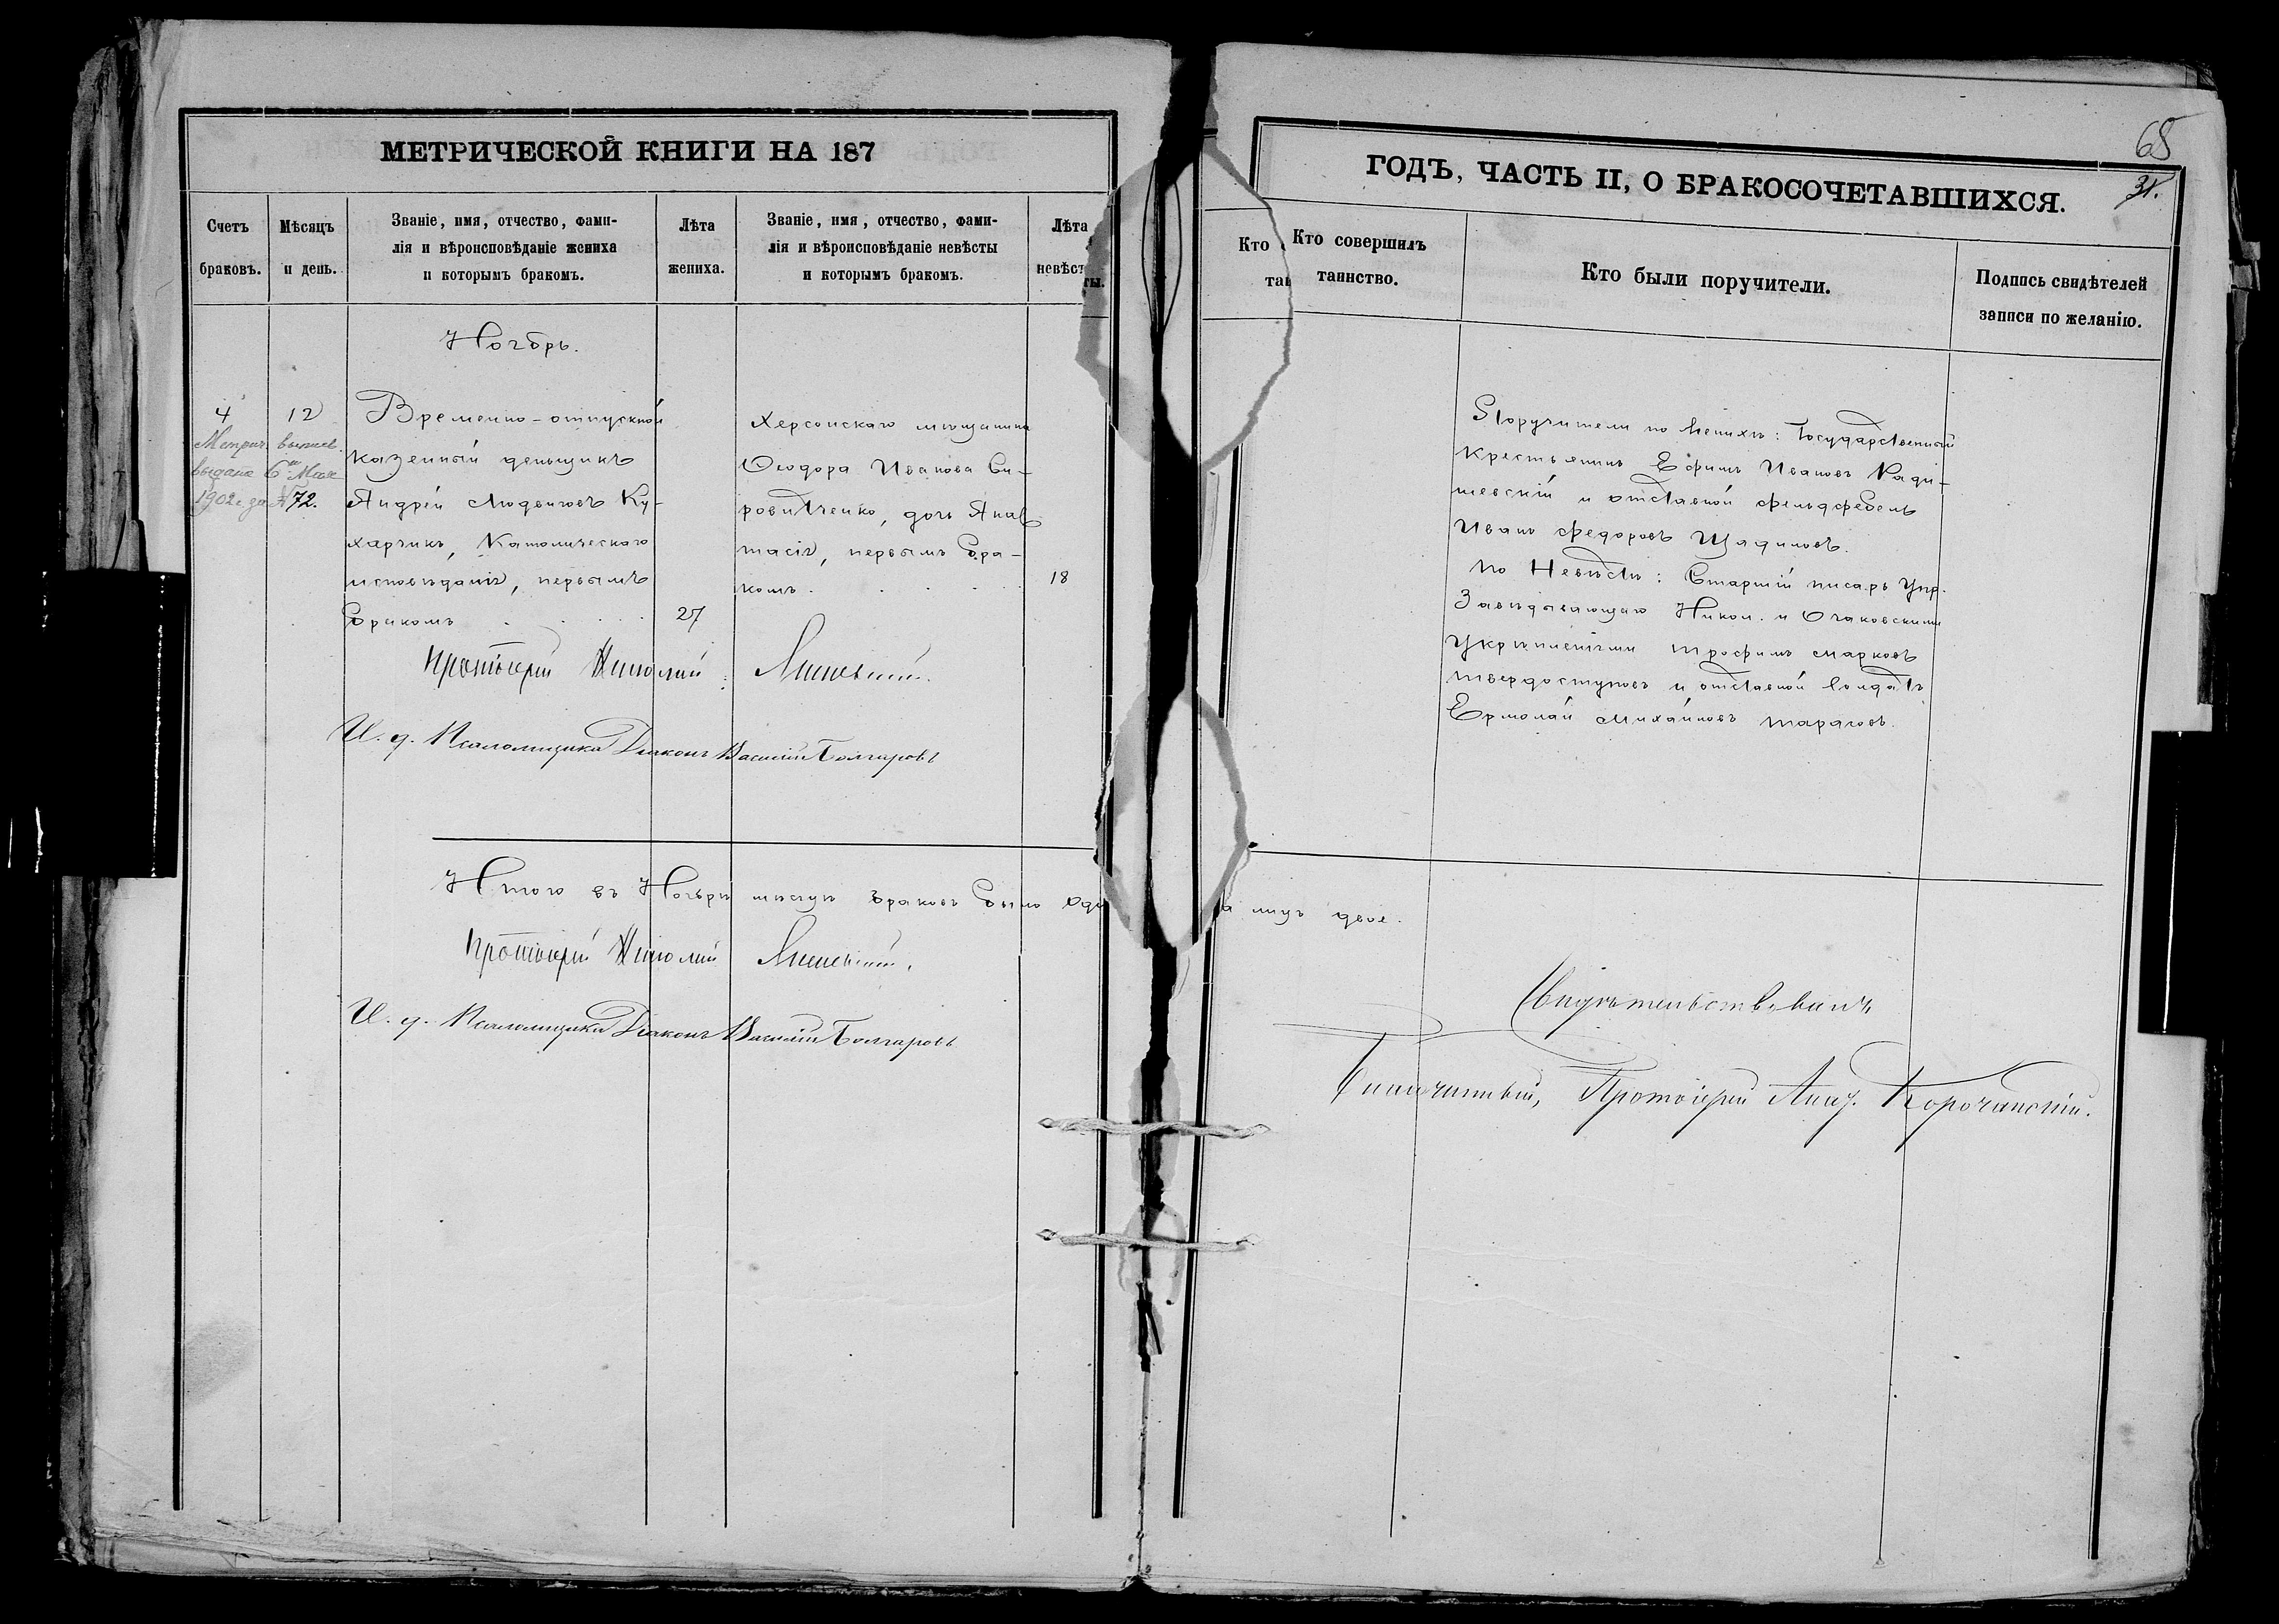 МЕТРИЧЕСКОЙ КНИГИ НА 187
ГОДЪ, ЧАСТЬ II, О БРАКОСОЧЕТАВШИХСЯ.
65
31.
Счетъ браковъ.
Мѣсяцъ и день.
Званіе, имя, отчество, фами-
лія и вѣроисповѣданіе жениха
и которымъ бракомъ.
Лѣта жениха.
Званіе, имя, отчество, фами-
лія и вѣроисповѣданіе невѣсты
и которымъ бракомъ.
Лѣта
невѣсты.
Кто совершилъ
таинство.
Кто были поручители.
Подпись свидѣтелей
записи по желанію.
Ноябрь.
4
12
Метрич. выпись
выдана 6 Мая
1902 г. за №72.
Временно-отпускной
казенный деньщикъ
Андрей Людвиговъ Ку-
харчикъ, Католическаго
исповѣданія, первымъ
бракомъ
27
Херсонскаго мѣщанина
Ѳеодора Иванова Си-
ровитченко, дочь Анас-
тасія, первымъ бра-
комъ
18
Поручители по Женихѣ: Государственный
Крестьянинъ Ефимъ Ивановъ Ради-
шевскій и отставной фельдфебель
Иванъ Федоровъ Щадиловъ.
По Невѣстѣ: Старшій писарь Упр.
Завѣдывающаго Никол. и Очаковскими
Укрѣпленіями Трофимъ Марковъ
Твердоступовъ и отставной солдатъ
Ермолай Михайловъ Тарасовъ.
Протоіерей Николай
И. д. Псаломщика Діаконъ Василій Болгаровъ
Итого въ Ноябрѣ мѣсяцѣ браковъ было оди
а лицъ двое.
Протоіерей Николай
И. д. Псаломщика Діаконъ Василій Болгаровъ
Свидѣтельствовалъ
Благочинный, Протоіерей Алек. Корочанскій.